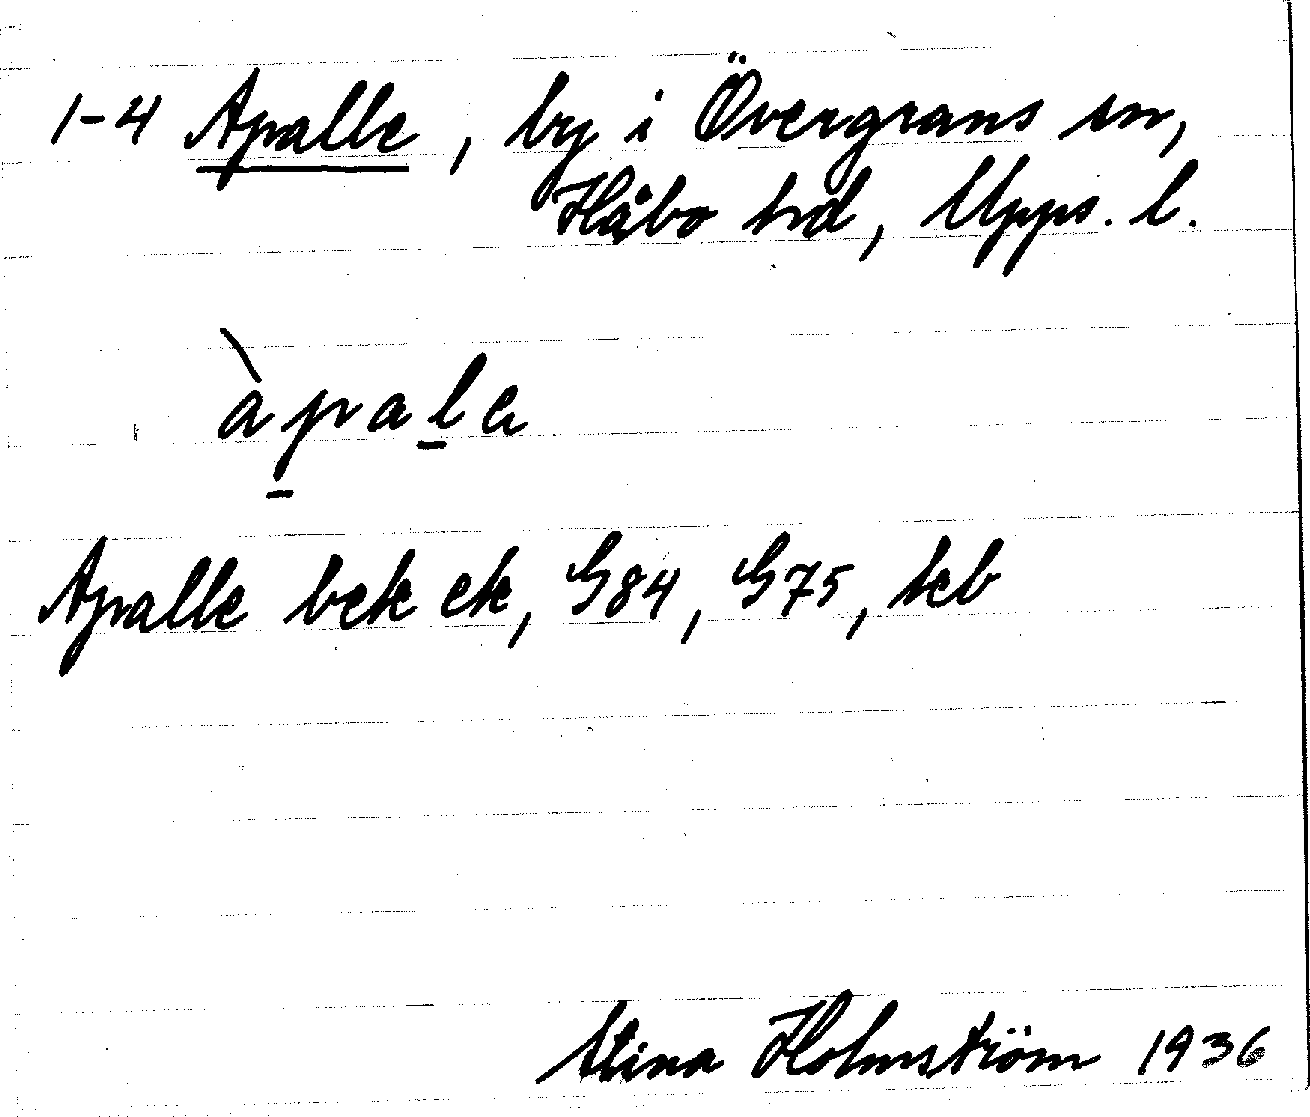 1-4 Apalle, by i Övergrans sn,
Håbo hd, Upps. l.
àpale
Apalle bek ek, G84, G75, keb
Stina Holmström 1936